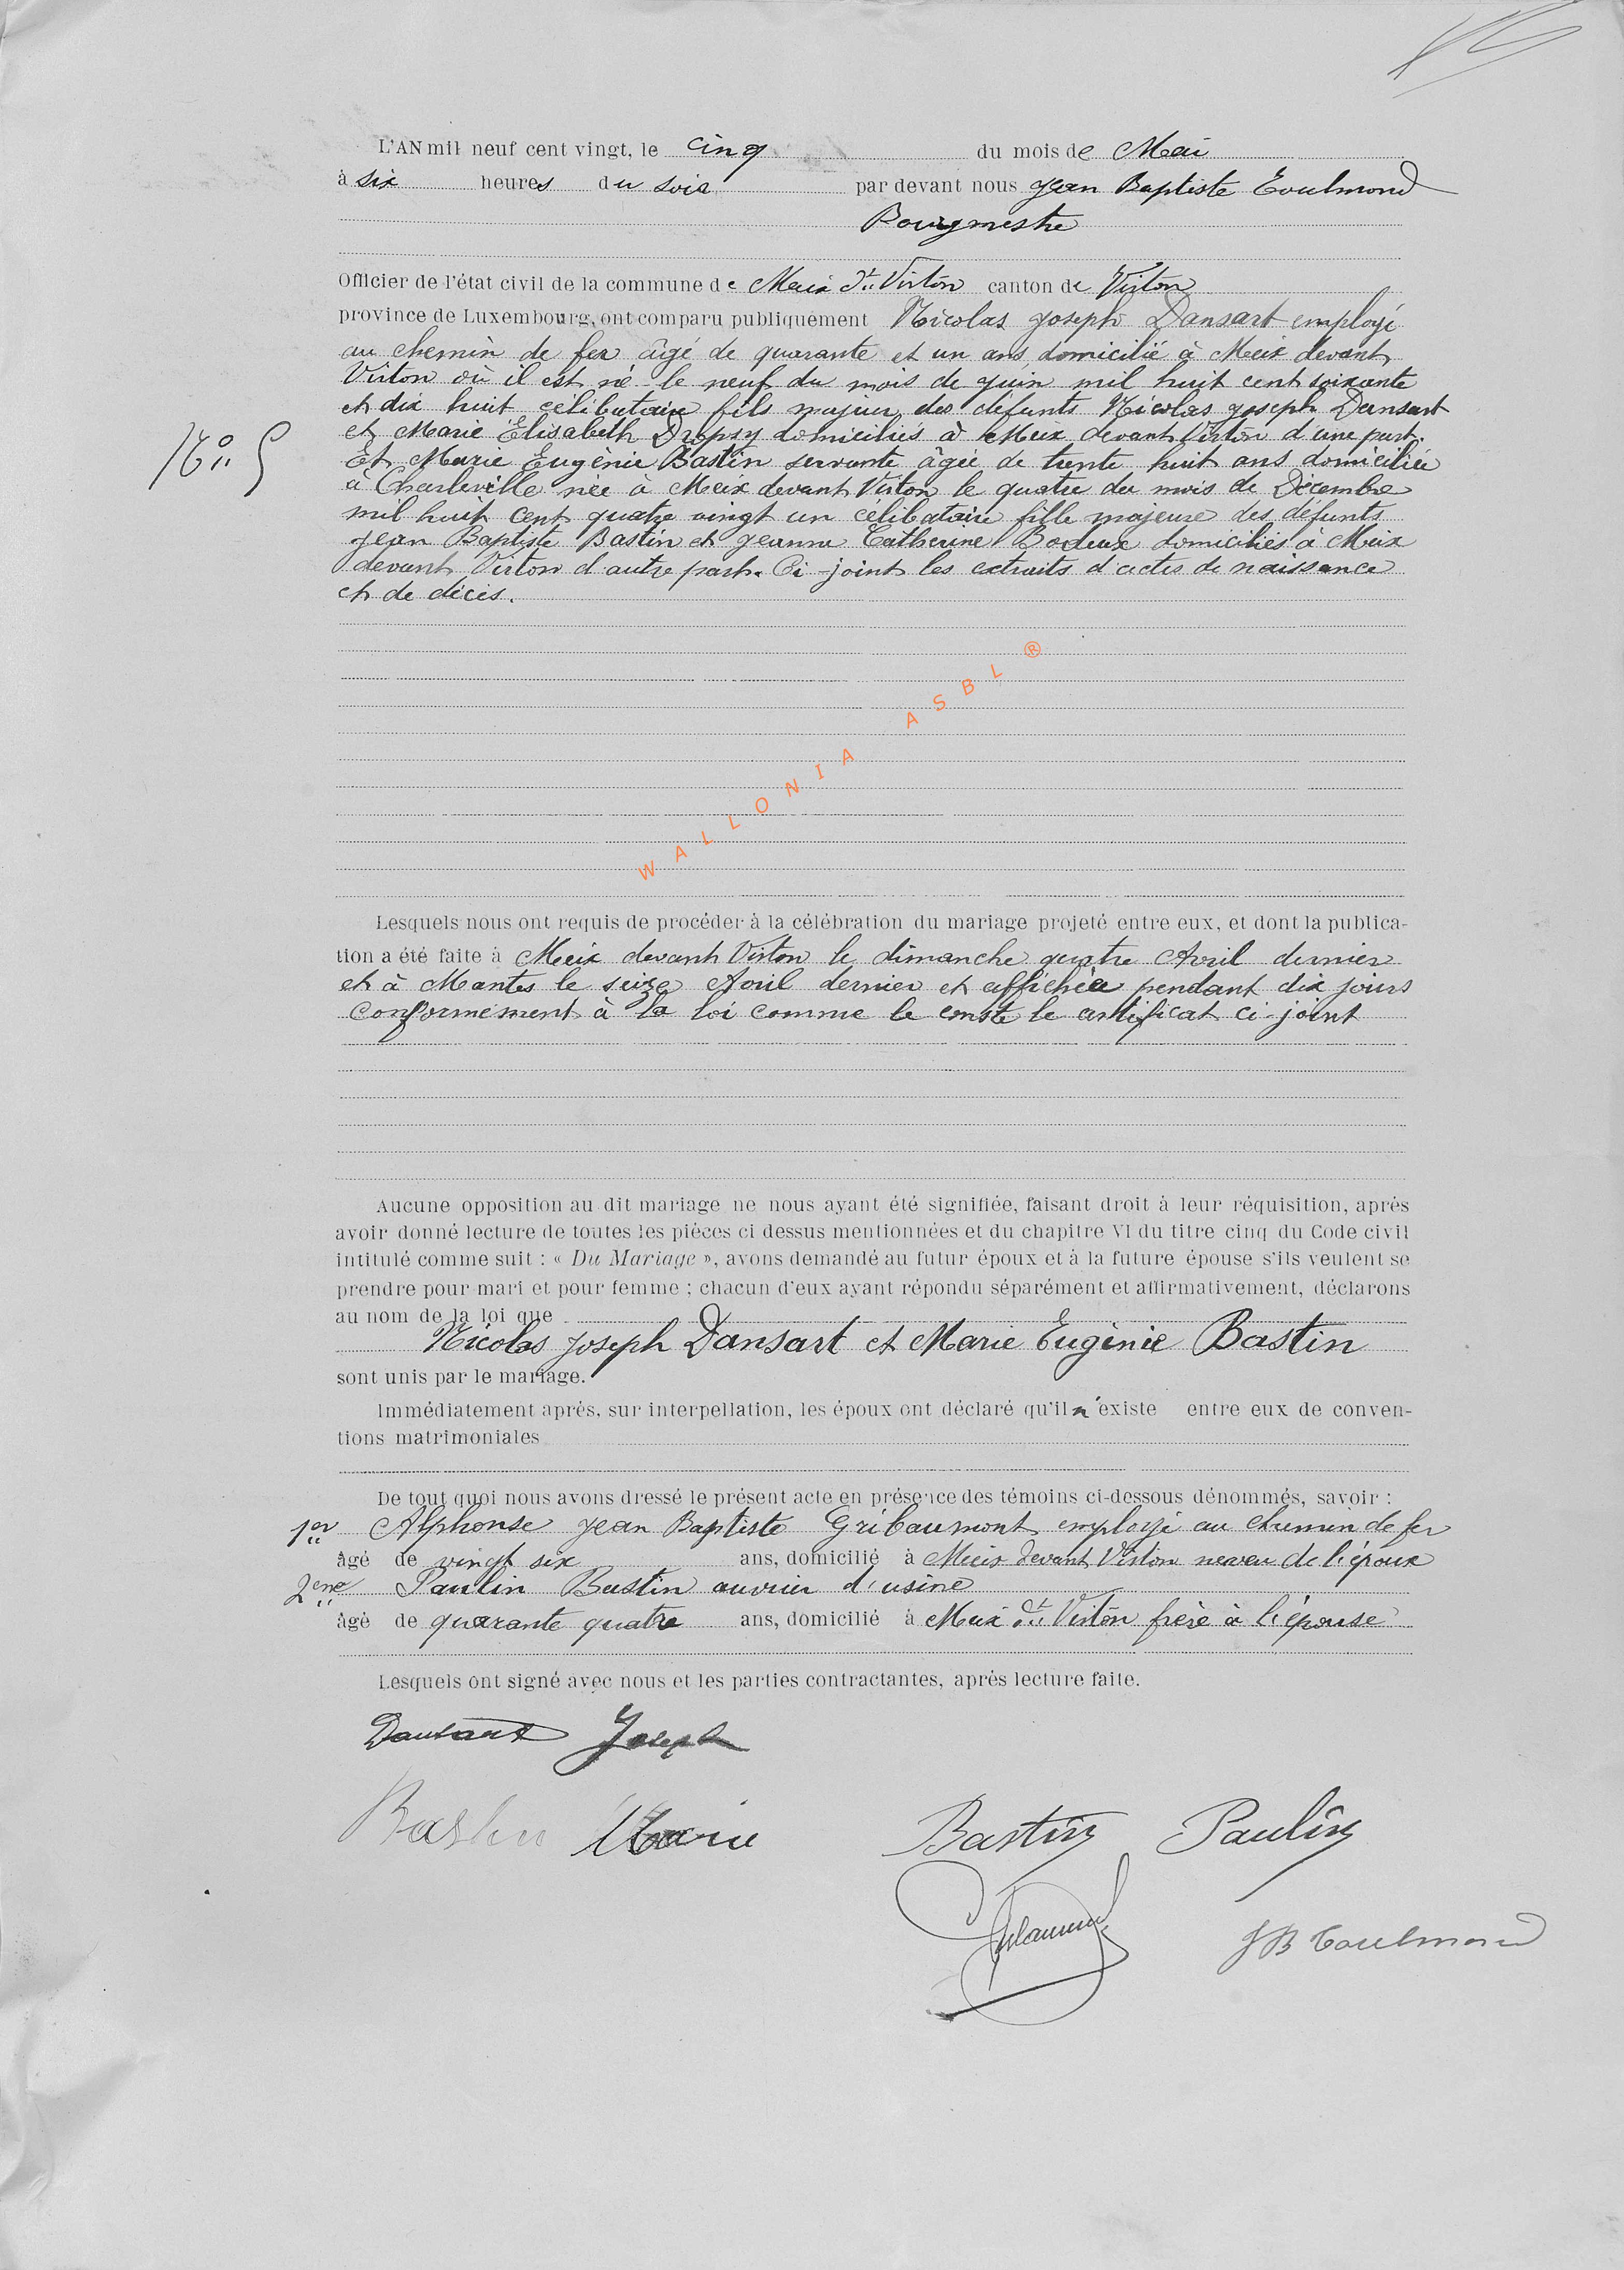 L'AN mil neuf cent vingt, le cinq du mois de Mai
à six heures du soir par devant nous Jean Baptiste Toulmond
Bourgmestre
Officier de l'état civil de la commune de Meix dt Virton canton de Virton
province de Luxembourg, ont comparu publiquement Nicolas Joseph Dansart employé
au chemin de fer âgé de quarante et un ans domicilié à Meix devant
Virton où il est né le neuf du mois de juin mil huit cent soixante
et dix huit célibataire fils majeur des défunts Nicolas Joseph Dansart
et Marie Elisabeth Dropsy domiciliés à Meix devant Virton d'une part.
N° 5
Et Marie Eugènie Bastin servante âgée de trente huit ans domiciliée
à Charleville née à Meix devant Virton le quatre du mois de Décembre
mil huit cent quatre vingt un célibataire fille majeure des défunts
Jean Baptiste Bastin et Jeanne Catherine Bodeux domiciliés à Meix
devant Virton d'autre part. Ci-joint les extraits d'actes de naissance
et de décès.
WALLONIA ASBL ®
Lesquels nous ont requis de procéder à la célébration du mariage projeté entre eux, et dont la publica-
tion a été faite à Meix devant Virton le dimanche quatre Avril dernier
et à Mantes le seize Avril dernier et affichée pendant dix jours
conformément à la loi comme le conste le certificat ci-joint
Aucune opposition au dit mariage ne nous ayant été signifiée, faisant droit à leur réquisition, après
avoir donné lecture de toutes les pièces ci dessus mentionnées et du chapitre VI du titre cinq du Code civil
intitulé comme suit : « Du Mariage », avons demandé au futur époux et à la future épouse s'ils veulent se
prendre pour mari et pour femme ; chacun d'eux ayant répondu séparément et affirmativement, déclarons
au nom de la loi que
Nicolas Joseph Dansart et Marie Eugènie Bastin
sont unis par le mariage.
Immédiatement après, sur interpellation, les époux ont déclaré qu'il n'existe entre eux de conven-
tions matrimoniales
De tout quoi nous avons dressé le présent acte en présence des témoins ci-dessous dénommés, savoir :
1er Alphonse Jean Baptiste Gribaumont employé au chemin de fer
âgé de vingt six ans, domicilié à Meix devant Virton neveu de l'époux
2eme Paulin Bastin ouvrier d'usine
âgé de quarante quatre ans, domicilié à Meix dt Virton frère à l'épouse
Lesquels ont signé avec nous et les parties contractantes, après lecture faite.
Dansart Joseph
Bastin Marie Bastin Paulin
JB Toulmond